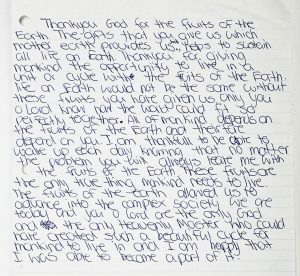 Thankyou God for the fruits of the
Earth. The gifts that you give us which
mother earth provides us, helps to sustain
all life on Earth. Thankyou for giving
mankind the opportunity to live in a
unit or cycle with the fruits of the Earth.
life on Earth would not be the same without
these fruits you have given us only you
o lord know how the world could fit so
perfectly together. All of mankind depends on
the fruits of the Earth and therefore
depend on you. I am thankfull to be able to
wake up each day knowing that no matter
the problem you will always leave me with
the fruits of the Earth. These fruits are
the only true thing mankind needs to live.
The fruits of the Earth allowed us to
advance into the complex society we are
today and you o lord are the only God
and the only Heavenly Master who could
have created such a beautiful cycle for
mankind to live in and I am happy that
I was able to become a part of it.